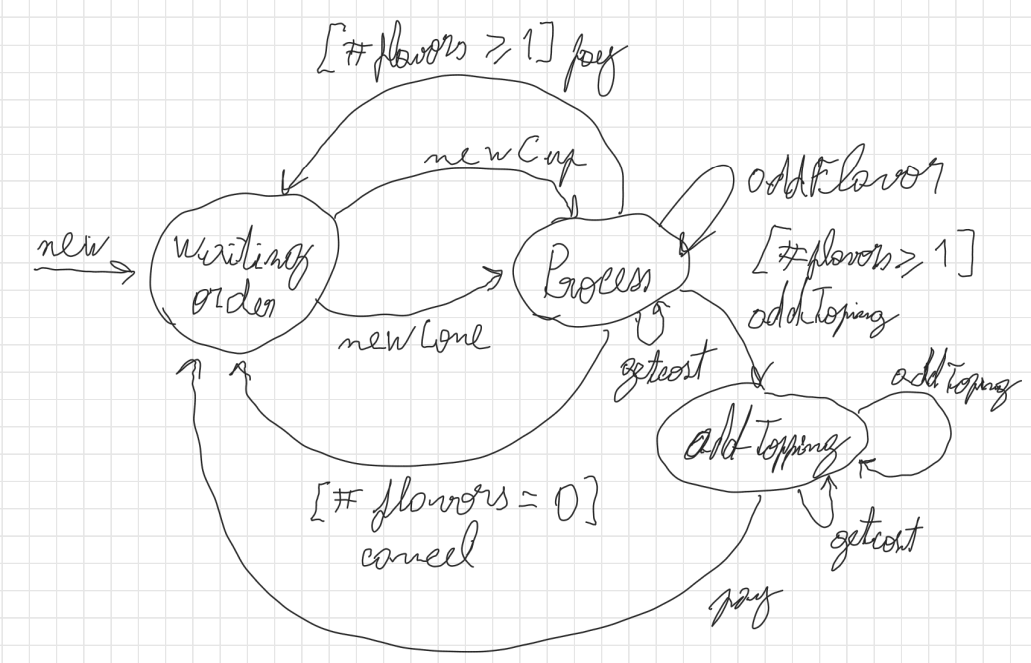 [#flavors ≥ 1] pay
newCup
addFlavor
new
Waiting
order
Process
[#flavors ≥ 1]
addToping
newCone
getcost
addToping
addTopping
[# flavors = 0]
cancel
getcost
pay